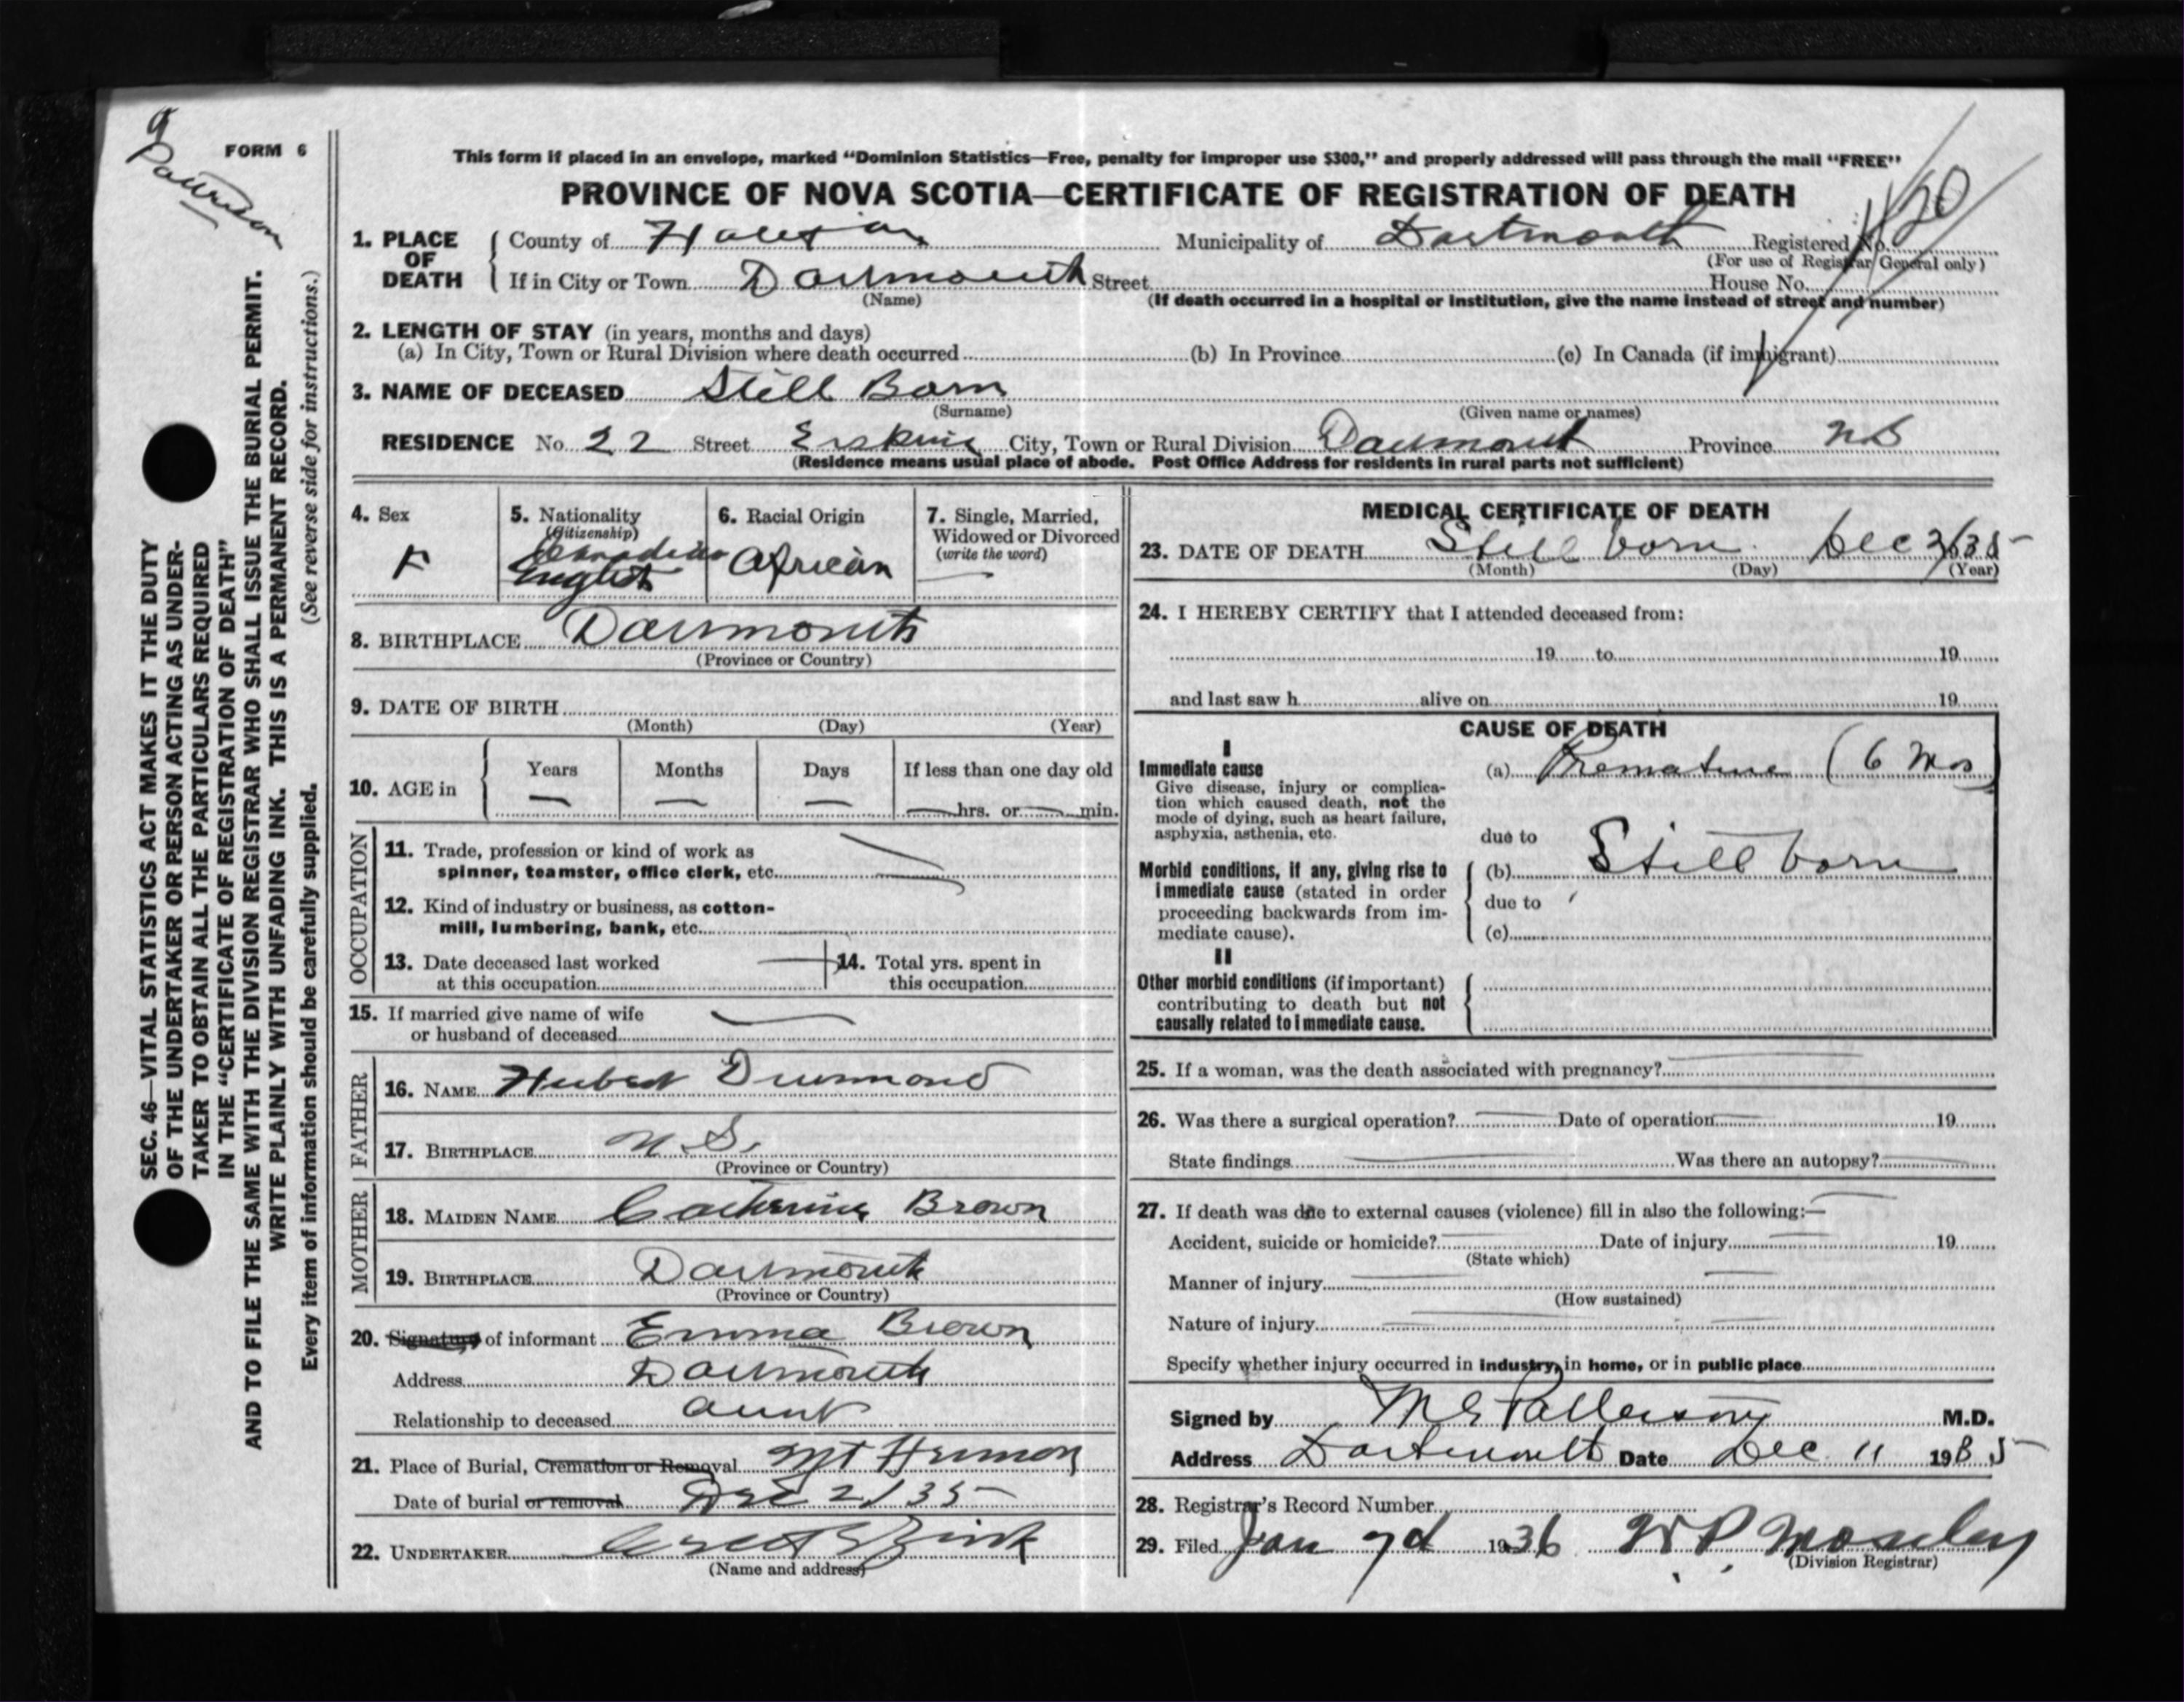 FORM 6
This form if placed in an envelope, marked “Dominion Statistics—Free, penalty for improper use $300,” and properly addressed will pass through the mail “FREE”
PROVINCE OF NOVA SCOTIA—CERTIFICATE OF REGISTRATION OF DEATH
1. PLACE OF DEATH County of Halifax Municipality of Dartmouth Registered No.
(For use of Registrar General only)
If in City or Town Dartmouth Street House No.
(Name) (If death occurred in a hospital or institution, give the name instead of street and number)
2. LENGTH OF STAY (in years, months and days)
(a) In City, Town or Rural Division where death occurred (b) In Province (c) In Canada (if immigrant)
3. NAME OF DECEASED Still Born
(Surname) (Given name or names)
RESIDENCE No. 22 Street Erskine City, Town or Rural Division Dartmouth Province NS
(Residence means usual place of abode. Post Office Address for residents in rural parts not sufficient)
SEC. 46—VITAL STATISTICS ACT MAKES IT THE DUTY
OF THE UNDERTAKER OR PERSON ACTING AS UNDER-
TAKER TO OBTAIN ALL THE PARTICULARS REQUIRED
IN THE “CERTIFICATE OF REGISTRATION OF DEATH”
AND TO FILE THE SAME WITH THE DIVISION REGISTRAR WHO SHALL ISSUE THE BURIAL PERMIT.
WRITE PLAINLY WITH UNFADING INK. THIS IS A PERMANENT RECORD.
Every item of information should be carefully supplied. (See reverse side for instructions.)
4. Sex
F
5. Nationality
(Citizenship)
Canadian
English
6. Racial Origin
African
7. Single, Married,
Widowed or Divorced
(write the word)
8. BIRTHPLACE Dartmouth
(Province or Country)
9. DATE OF BIRTH
(Month) (Day) (Year)
10. AGE in Years Months Days If less than one day old
hrs. or min.
OCCUPATION
11. Trade, profession or kind of work as
spinner, teamster, office clerk, etc.
12. Kind of industry or business, as cotton-
mill, lumbering, bank, etc.
13. Date deceased last worked
at this occupation
14. Total yrs. spent in
this occupation
15. If married give name of wife
or husband of deceased
FATHER
16. NAME Hubert Drummond
17. BIRTHPLACE N.S.
(Province or Country)
MOTHER
18. MAIDEN NAME Catherine Brown
19. BIRTHPLACE Dartmouth
(Province or Country)
20. Signature of informant Emma Brown
Address Dartmouth
Relationship to deceased Aunt
21. Place of Burial, Cremation or Removal Mt Hermon
Date of burial or removal Dec 2/35
22. UNDERTAKER
(Name and address)
MEDICAL CERTIFICATE OF DEATH
23. DATE OF DEATH Still born Dec
(Month) (Day) (Year)
24. I HEREBY CERTIFY that I attended deceased from:
19 to 19
and last saw h alive on 19
CAUSE OF DEATH
I
Immediate cause
Give disease, injury or complica-
tion which caused death, not the
mode of dying, such as heart failure,
asphyxia, asthenia, etc.
(a) Premature (6 Mos)
due to
Morbid conditions, if any, giving rise to
immediate cause (stated in order
proceeding backwards from im-
mediate cause).
(b) Still born
due to
(c)
II
Other morbid conditions (if important)
contributing to death but not
causally related to immediate cause.
25. If a woman, was the death associated with pregnancy?
26. Was there a surgical operation? Date of operation 19
State findings Was there an autopsy?
27. If death was due to external causes (violence) fill in also the following:—
Accident, suicide or homicide? Date of injury 19
(State which)
Manner of injury
(How sustained)
Nature of injury
Specify whether injury occurred in industry, in home, or in public place
Signed by Patterson M.D.
Address Dartmouth Date Dec 11 1935
28. Registrar’s Record Number
29. Filed Jan 1936 Moseley
(Division Registrar)